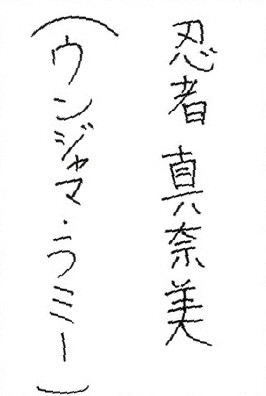 忍者 真奈美
(ウンジャマ・ラミー)